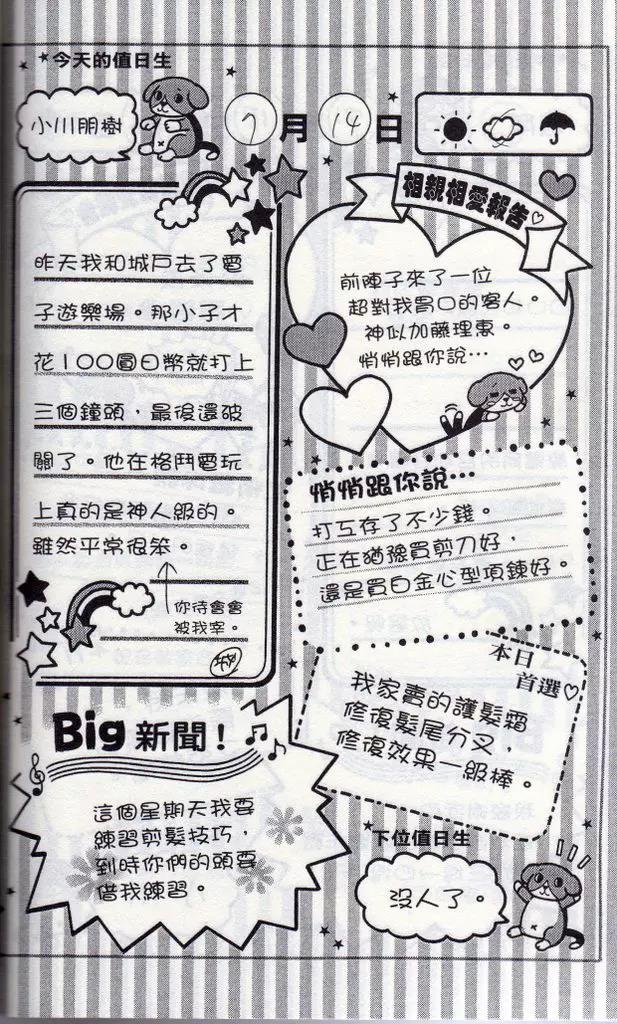 今天的值日生
小川朋樹
7月14日
昨天我和城戶去了電
子遊樂場。那小子才
花100圓日幣就打上
三個鐘頭，最後還破
關了。他在格鬥電玩
上真的是神人級的。
雖然平常很笨。
你待會會
被我宰。
城
相親相愛報告
前陣子來了一位
超對我胃口的客人。
神似加藤理惠。
悄悄跟你說…
悄悄跟你說…
打工存了不少錢。
正在猶豫買剪刀好，
還是買白金心型項鍊好。
本日
首選
我家賣的護髮霜
修復髮尾分叉，
修復效果一級棒。
Big 新聞！
這個星期天我要
練習剪髮技巧，
到時你們的頭要
借我練習。
下位值日生
沒人了。